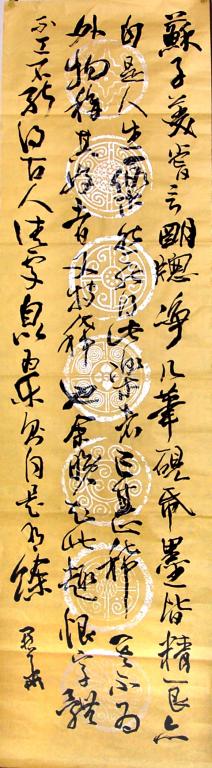 蘇子美嘗言明窗淨几筆硯紙墨皆精良亦
自是人生一樂然能得此樂者甚稀其不為
外物移其好者又特稀也余晚知此趣恨字體
不工不能得古人佳處若以為樂則自是有餘